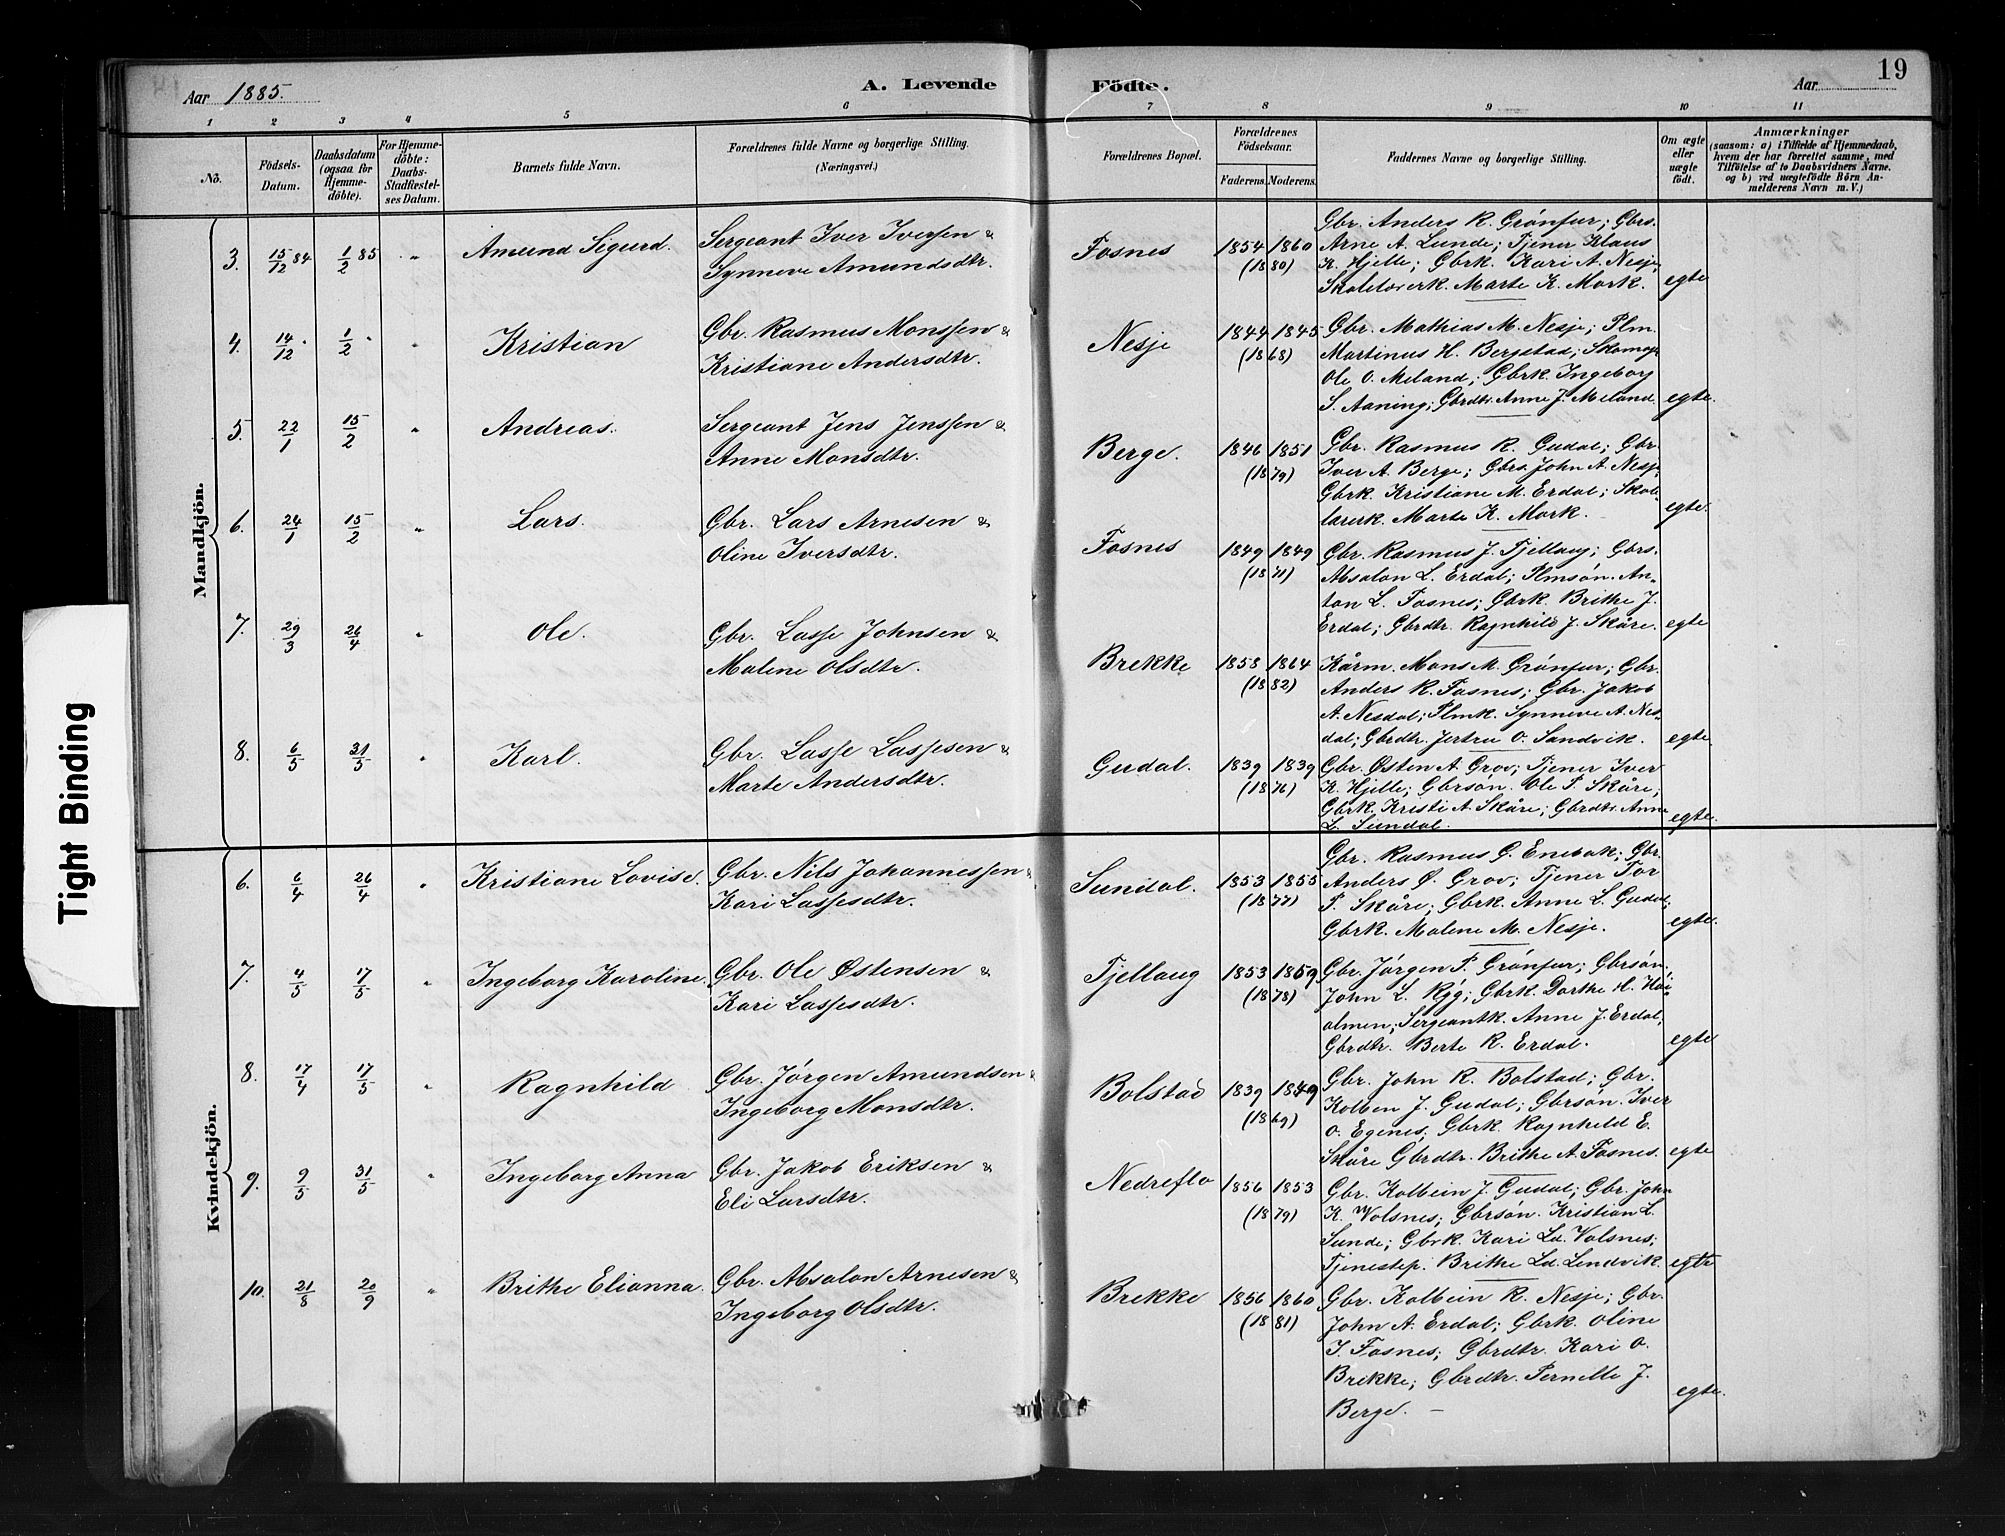 Aar 1885.
A. Levende
Födte.
Aar
19
1 2 3 4 5 6 7 8 9 10 11
No.
Födsels-
Datum.
Daabsdatum
(ogsaa for
Hjemme-
döbte).
For Hjemme-
döbte:
Daabs-
Stadfæstel-
ses Datum.
Barnets fulde Navn.
Forældrenes fulde Navne og borgerlige Stilling.
(Næringsvei.)
Forældrenes Bopæl.
Forældrenes
Födselsaar.
Faderens. Moderens.
Faddernes Navne og borgerlige Stilling.
Om ægte
eller
uægte
födt.
Anmærkninger
(saasom: a) i Tilfælde af Hjemmedaab,
hvem der har forrettet samme, med
Tilföielse af to Daabsvidners Navne.
og b) ved uægtefödte Börn An-
melderens Navn m. V.)
Mandkjön.
3. 15/12 84 1/2 85 " Amund Sigurd. Sergeant Iver Iversen &
Synneve Amundsdtr.
Fosnes 1854 1860
(1880)
Gbr. Anders R. Grönfur; Gbrs.
Arne A. Lunde; Tjener Klaus
K. Hjelle; Gbrk. Kari A. Nesje;
Skolelærerk. Marte K. Mork. egte
4. 14/12 " 1/2 " " Kristian Gbr. Rasmus Monssen &
Kristiane Andersdtr.
Nesje 1844 1845
(1868)
Gbr. Mathias M. Nesje; Plm.
Martinus H. Bergstad; Skomag.
Ole O. Meland; Gbrk. Ingeborg
S. Aaning; Gbrdtr. Anne J. Meland. egte.
5. 22/1 15/2 " Andreas. Sergeant Jens Jenssen &
Anne Monsdtr.
Berge. 1846 1851
(1879)
Gbr. Rasmus R. Gudal; Gbr.
Iver A. Berge; Gbrs. John A. Nesje;
Gbrk. Kristiane M. Erdal; Skol-
lærerk. Marte K. Mork. egte.
6. 24/1 15/2 " Lars. Gbr. Lars Arnesen &
Oline Iversdtr.
Fosnes 1849 1849
(1871)
Gbr. Rasmus J. Tjellaug; Gbrs.
Absalon L. Erdal; Plmsön. An-
ton L. Fosnes; Gbrk. Brithe J.
Erdal; Gbrdtr. Ragnhild J. Skåre. egte
7. 29/3 26/4 " Ole. Gbr. Lasse Johnsen &
Malene Olsdtr.
Brekke 1858 1864
(1882)
Kårm. Mons M. Grönfur; Gbr.
Anders R. Fosnes; Gbr. Jakob
A. Nesdal; Plmk. Synneve A. Nes-
dal; Gbrdtr. Jertru O. Sandvik. egte.
8. 6/5 31/5 " Karl. Gbr. Lasse Lassesen &
Marte Andersdtr.
Gudal. 1839 1839
(1876)
Gbr. Østen A. Grov; Tjener Iver
K. Hjelle; Gbrsön. Ole P. Skåre;
Gbrk. Kristi A. Skåre; Gbrdtr. Anne
L. Sundal. egte.
Kvindekjön.
6. 6/4 26/4 " Kristiane Lovise. Gbr. Nils Johannessen &
Kari Lassesdtr.
Sundal. 1853 1855
(1877)
Gbr. Rasmus G. Enebak; Gbr.
Anders Ø. Grov; Tjener Tor
P. Skåre; Gbrk. Anne L. Gudal;
Gbrk. Malene M. Nesje. egte.
7. 4/5 17/5 " Ingeborg Karoline. Gbr. Ole Østensen &
Kari Lassesdtr.
Tjellaug 1853 1859
(1878)
Gbr. Jörgen P. Grönfur; Gbrsön.
John L. Ryg; Gbrk. Dorthe H. Hai-
almen; Sergeantk. Anne J. Erdal;
Gbrdtr. Berte R. Erdal. egte
8. 17/4 17/5 " Ragnhild Gbr. Jörgen Amundsen &
Ingeborg Monsdtr.
Bolstad 1839 1849
(1869)
Gbr. John R. Bolstad; Gbr.
Kolben J. Gudal; Gbrsön. Iver
O. Egenes; Gbrk. Ragnhild E.
Skåre Gbrdtr. Brithe A. Fosnes. egte
9. 9/5 31/5 " Ingeborg Anna Gbr. Jakob Eriksen &
Eli Larsdtr.
Nedreflo 1856 1853
(1879)
Gbr. Kolbein J. Gudal; Gbr. John
K. Volsnes; Gbrsön. Kristian L.
Sunde; Gbrk. Kari Ld. Volsnes;
Tjenestep. Brithe Ld. Lendvik. egte
10. 21/8 20/9 " Brithe Elianna. Gbr. Absalon Arnesen &
Ingeborg Olsdtr.
Brekke 1856 1860
(1881)
Gbr. Kolbein R. Nesje; Gbr.
John A. Erdal; Gbrk. Oline
I. Fosnes; Gbrdtr. Kari O.
Brekke; Gbrdtr. Pernille J.
Berge. – egte.
Tight Binding